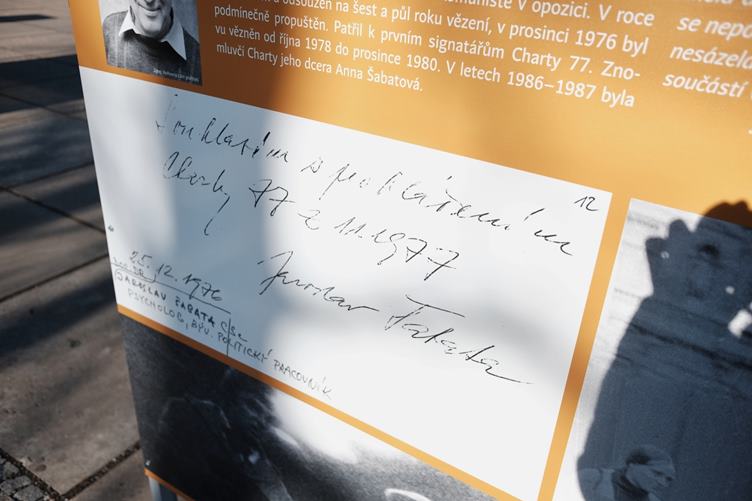 komunisté v opozici. V roce
a odsouzen na šest a půl roku vězení, v prosinci 1976 byl
podmínečně propuštěn. Patřil k prvním signatářům Charty 77. Zno-
vu vězněn od října 1978 do prosince 1980. V letech 1986–1987 byla
mluvčí Charty jeho dcera Anna Šabatová.
se nepo
nesázel
součástí
12
Souhlasím s prohlášením
Charty 77 z 1.1.1977
Jaroslav Šabata
25.12.1976
JAROSLAV ŠABATA CSc
PSYCHOLOG, BÝV. POLITICKÝ PRACOVNÍK